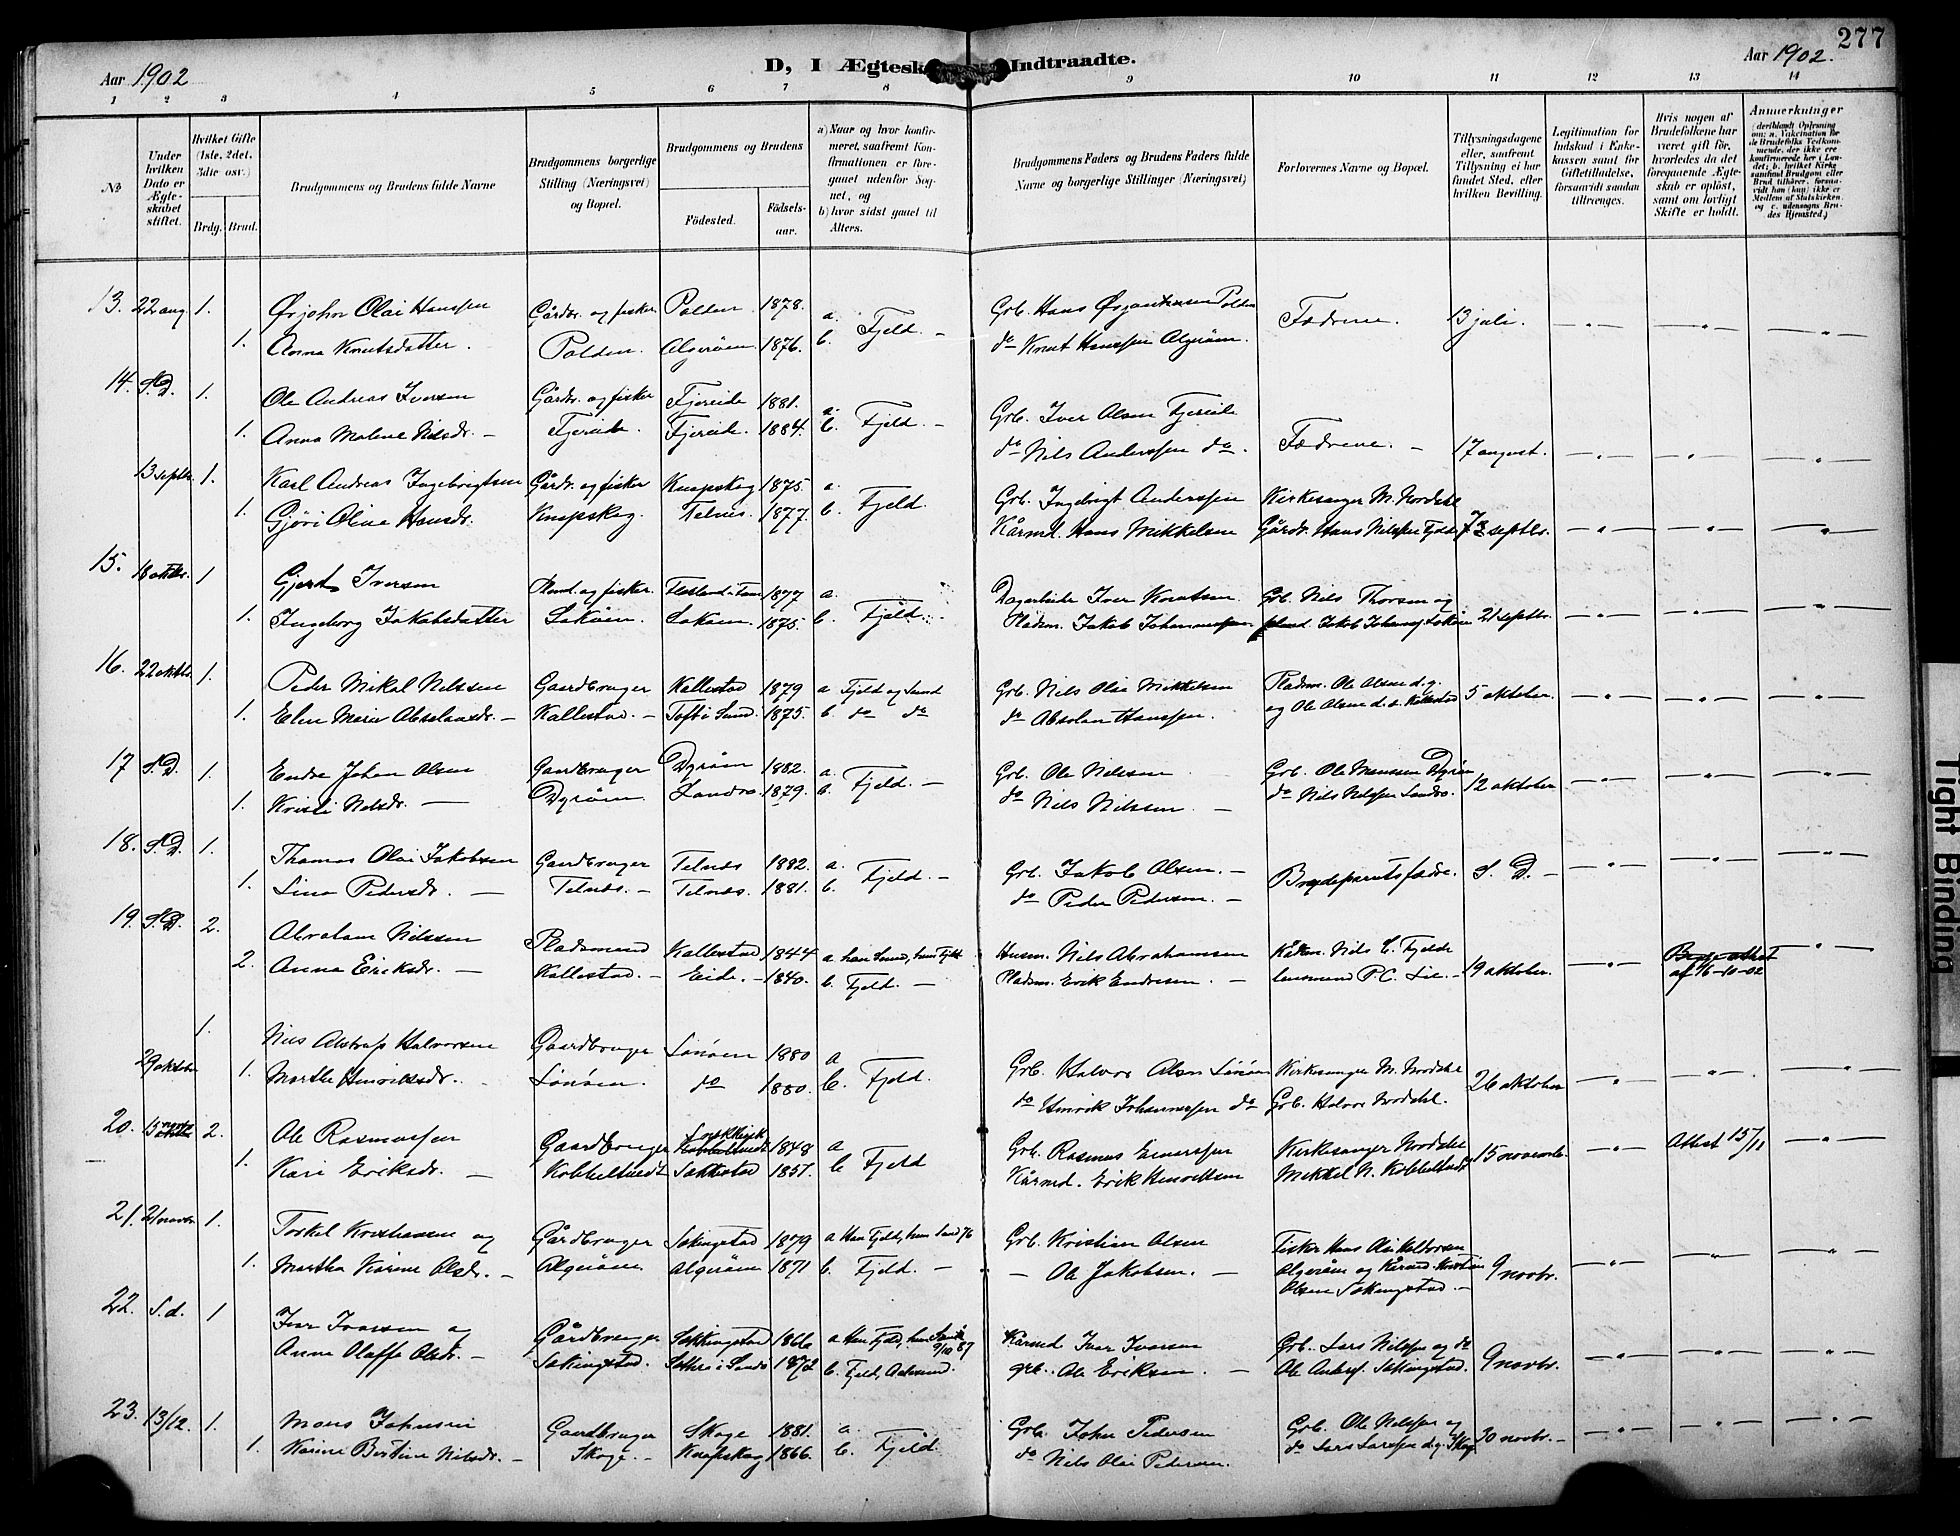 277
Aar 1902
D, I Ægtesk Indtraadte.
Aar 1902.
1 2 3 4 5 6 7 8 9 10 11 12 13 14
№
Under hvilken Dato er Ægteskabet stiftet.
Hvilket Gifte (1ste, 2det, 3die osv.)
Brdg. Brud.
Brudgommens og Brudens fulde Navne
Brudgommens borgerlige Stilling (Næringsvei) og Bopæl.
Brudgommens og Brudens
Fødested.
Fødselsaar.
a) Naar og hvor konfirmeret, saafremt Konfirmationen er foregaaet udenfor Sognet, og
b) hvor sidst gaaet til Alters.
Brudgommens Faders og Brudens Faders fulde Navne og borgerlige Stillinger (Næringsvei)
Forlovernes Navne og Bopæl.
Tillysningsdagene eller, saafremt Tillysning ei har fundet Sted, efter hvilken Bevilling.
Legitimation for Indskud i Enkekassen samt for Giftetilladelse, forsaavidt saadan tiltrænges.
Hvis nogen af Brudefolkene har været gift før, hvorledes da det foregaaende Ægteskab er opløst, samt om lovligt Skifte er holdt.
Anmerkninger
13. 22 aug 1. Ørjohn Olai Hanssen Gårdbr. og fisker Polden 1878. a. Grb. Hans Ørjanssen Polden Fædrene. 13 juli.
1. Anna Knutsdatter. Polden. Algerøen 1876. b. Fjeld. do Knut Hanssen Algerøen.
14. S.D. 1. Ole Andreas Iversen Gårdbr. og fisker Fjereide 1881. a. Grb. Iver Olsen Fjereide
1. Anna Malene Nilsdr. Fjereide Fjereide. 1884. b. Fjeld. do Nils Anderssen do. Fædrene. 17 august.
13 septbr. 1. Karl Andreas Ingebrigtsen Gårdbr. og fisker Knapskog 1875. a. Grb. Ingebrigt Anderssen Kirkesanger M. Nordahl
1. Gjøri Oline Hansdr. Knapskog. Telnes. 1877. b. Fjeld. Kårmd. Hans Mikkelsen Gårdbr. Hans Nilssen Fjeld 7 septbr.
15. 18 oktbr. 1 Gjert Iversen Plmd. og fisker. Flesland i Fane 1877 a. Dagarbeider Iver Knutsen. Grb. Nils Thorsen og
1. Ingeborg Jakobsdatter Løkøen. Løkøen. 1875. b. Fjeld. Pladsm. Jakob Johannessen plmd. Jakob Johannes Løkøen 21 septbr.
16. 22 oktbr. 1. Peder Mikal Nilssen Gaardbruger Kallestad 1879 a Fjeld og Sund Grb. Nils Olai Mikkelsen Pladsm. Ole Olsen d.y.
1. Elen Marie Absalonsdr. Kallestad. Toft i Sund. 1875. b. do do do Absalon Hanssen. og Ole Olsen d.æ. Kallestad 5 oktober.
17 S.D. 1. Endre Johan Olsen Gaardbruger Dyrøen 1882. a. Grb. Ole Nilssen Grb. Ole Monssen Dyrøen
1. Kristi Nilsdr. Dyrøen. Landro. 1879. b. Fjeld. do Nils Nilssen. do Nils Nilssen Landro. 12 oktober
18. S.D. 1. Thomas Olai Jakobsen Gaardbruger Telnes 1882. a. Grb. Jakob Olsen.
1. Lina Pedersdr. Telnes. Telnes. 1881. b. Fjeld. do Peder Pedersen. Brudeparrets fædre. S.D.
19. S.D. 2. Abraham Nilssen Pladsmand Kallestad 1844 a han Sund, hun Fjeld Husm. Nils Abrahamsen Kårm. Nils E. Fjelde
2. Anna Eriksdr. Kallestad. Eide. 1840. b. Fjeld. Pladsm. Erik Endresen. lensmand P. C. Lie. 19 oktober. attest af 16-10-02
1. Nils Alstrup Halvorsen Gaardbruger Lønøen 1880 a
29 oktbr 1. Marthe Henriksdr. Lønøen. do 1880. b. Fjeld. Grb. Halvor Olsen Lønøen Kirkesanger M. Nordahl 26 oktober
do Henrik Johannessen do Grb. Halvor Nordahl.
20. 15 novbr. 2. Ole Rasmussen Gaardbruger 1848 a Grb. Rasmus Einerssen Kirkesanger Nordahl Attest 15/11
1. Kari Eriksdr. Kobbeltvedt Sækkestad 1857. b. Fjeld Kårmd. Erik Henriksen Mikkel N. Kobbeltvedt 15 novemb.
21. 21 novbr. 1. Torkel Kristiansen og Gårdbruger Søkingstad 1879 a Han Fjeld, hun Sund 76 Grb. Kristian Olsen Fisker Hans Olai Haldorsen
1. Martha Karine Olsdr. Algerøen Algerøen 1871 b. Fjeld. Ole Jakobsen. Algerøen og Kårmd. Kristian Olsen Søkingstad. 9 novbr.
22. S.d. 1 Iver Iversen og Gårdbruger Søkkingstad 1866 a Han Fjeld, hun Sund 9/10 87 Kårmd Iver Iversen Grb. Lars Nilssen og do
1. Anna Olaffa Olsdr. Søkingstad. i Sund 1872 b. Fjeld, Aalesund. grb. Ole Eriksen. Ole Anders. Søkingstad. 9 novbr.
23. 13/12. 1. Mons Johnsen Gaardbruger Skoge 1881. a. Grb. John Pedersen Grb. Ole Nilssen og
1. Karine Bertine Nilsdr. Skoge. Knapskog 1866. b. Fjeld. do Nils Olai Pedersen. do Lars Larssen d.y. Skog 30 novbr.
Tight Binding